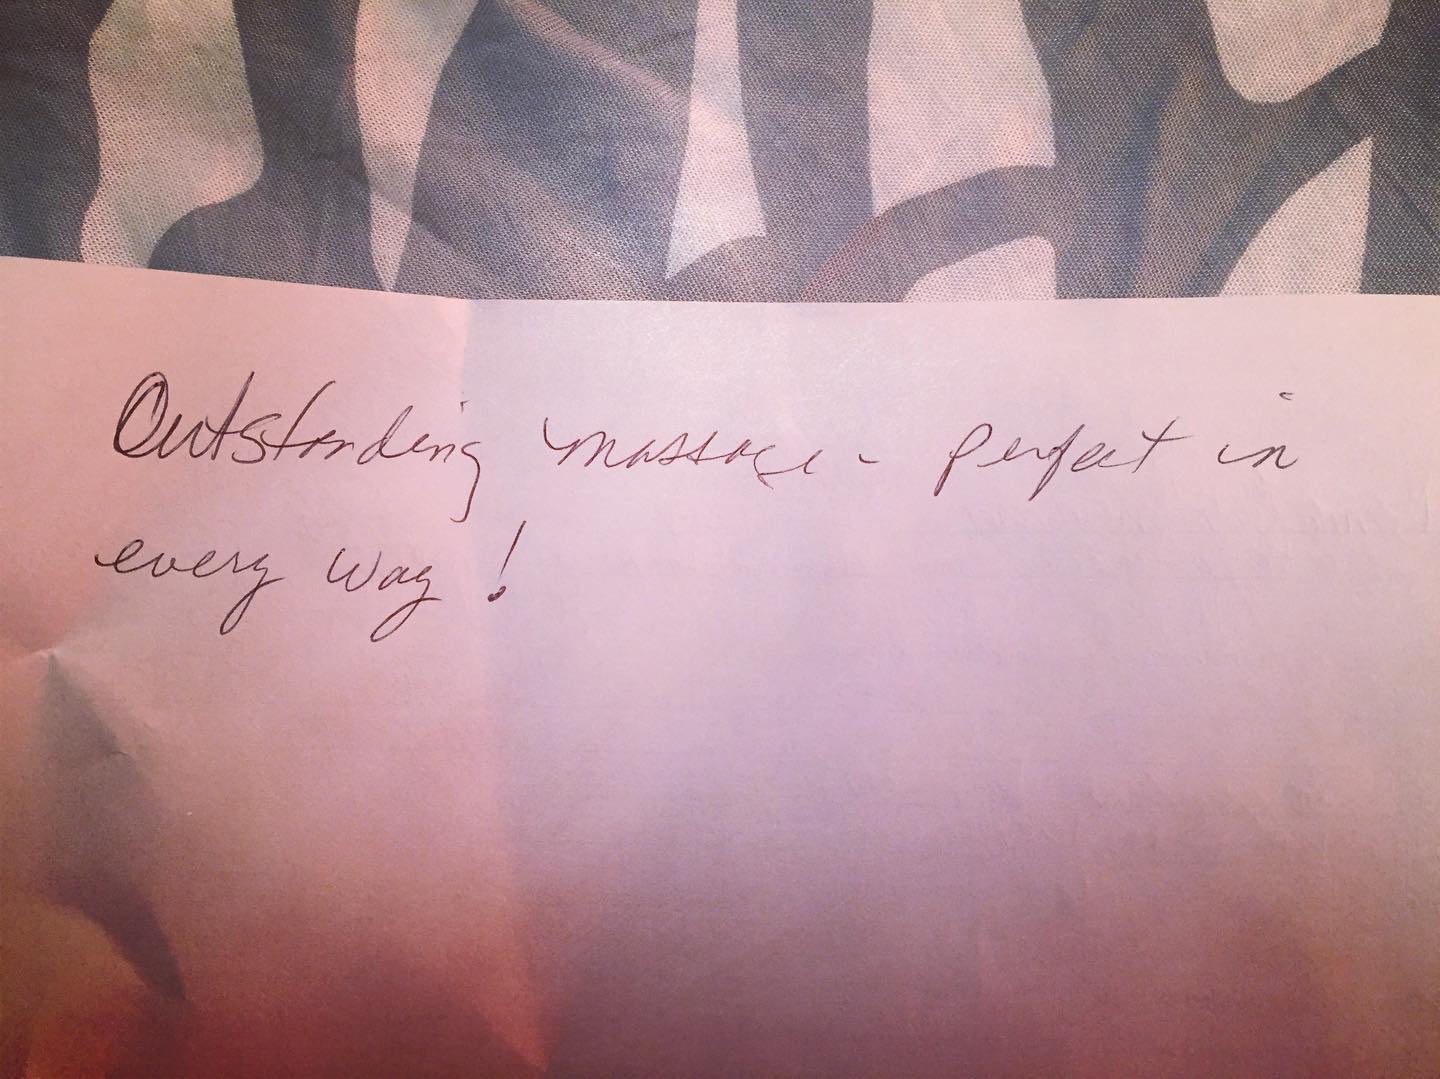 Outstanding massage - perfect in
every way!